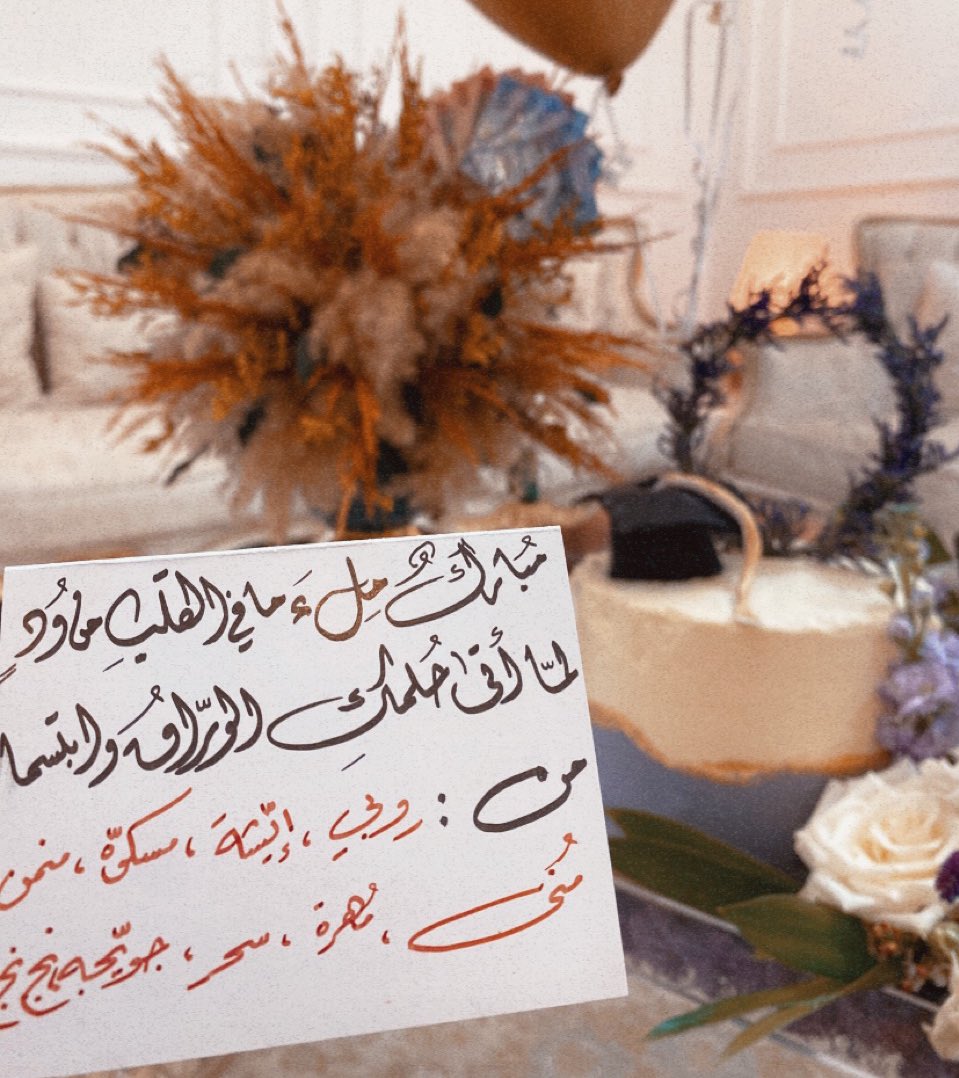 مُباركٌ مِلءَ ما في القلبِ من وُدٍ
لمّا أتى حُلمكِ الورّاقُ وابتسما
من : روبي ، إيّشة ، مسكوّة ، منمن
مُنى ، مُهرة ، سحر ، جويّجه